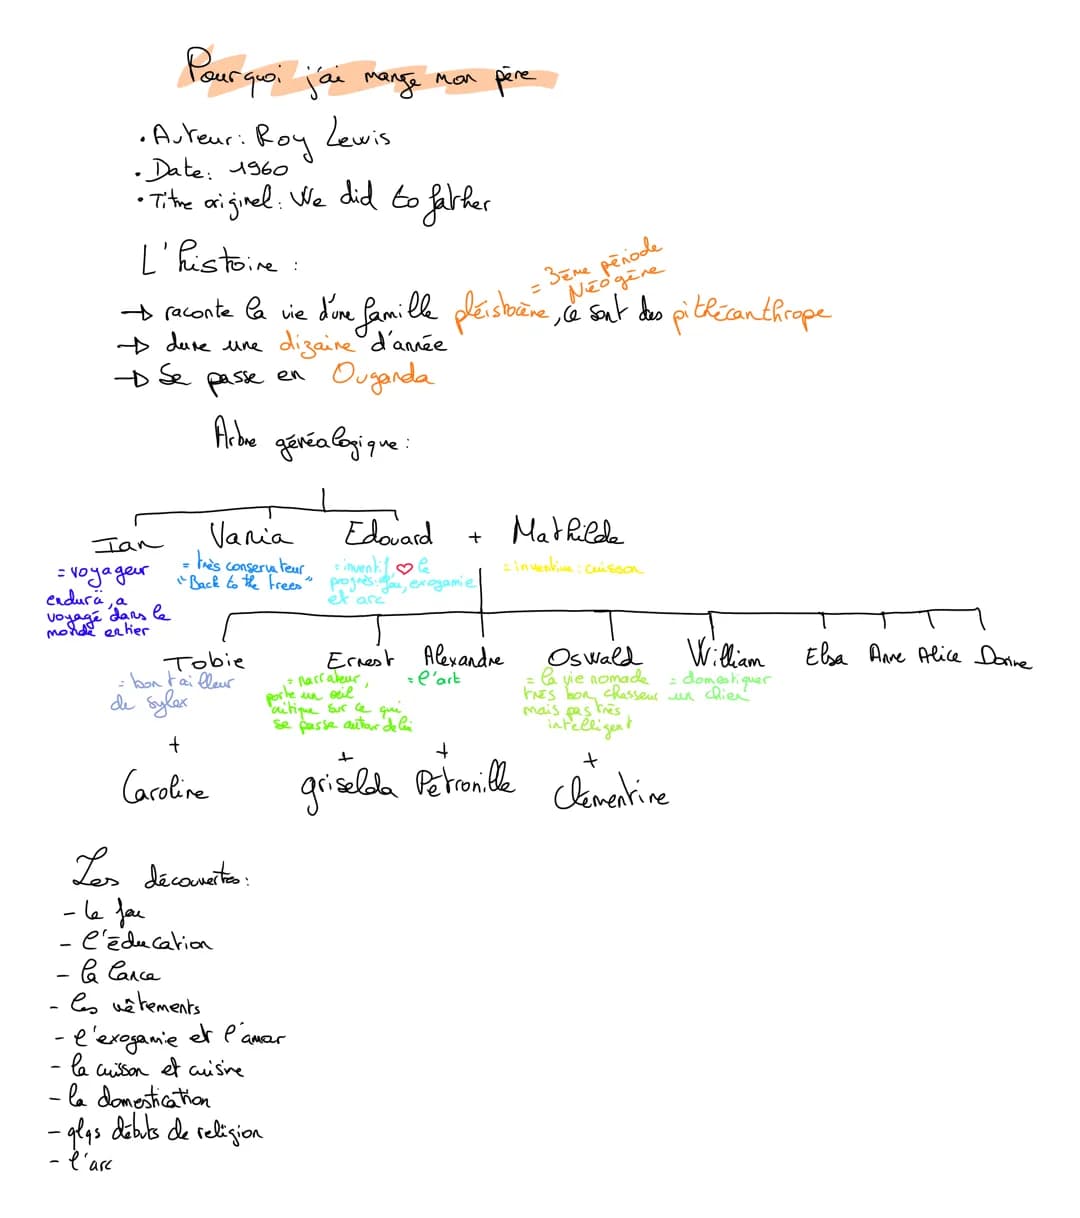 Pourquoi j'ai mangé mon père
• Auteur: Roy Lewis
• Date: 1960
• Titre originel: We did to father
L'histoire :
= 3ème période
Néogène
→ raconte la vie d'une famille pléistocène, ce sont des pithécanthrope
→ dure une dizaine d'année
→ Se passe en Ouganda
Arbre généalogique :
Ian Vania Edouard + Mathilde
= voyageur
endura, a
voyagé dans le
monde entier
= très conservateur
"Back to the trees"
= inventif ♥ le
progrès: feu, exogamie
et arc
= inventive : cuisson
Tobie Ernest Alexandre Oswald William Elsa Anne Alice Dorine
= bon tailleur
de sylex
= narrateur,
porte un œil
critique sur ce qui
se passe autour de lui
= l'art
= la vie nomade
très bon chasseur
mais pas très
intelligent
= domestiquer
un chien
+ + + +
Caroline griselda Pétronille Clémentine
Les découvertes :
- le feu
- l'éducation
- la lance
- les vêtements
- l'exogamie et l'amour
- la cuisson et cuisine
- la domestication
- qlqs débuts de religion
- l'arc